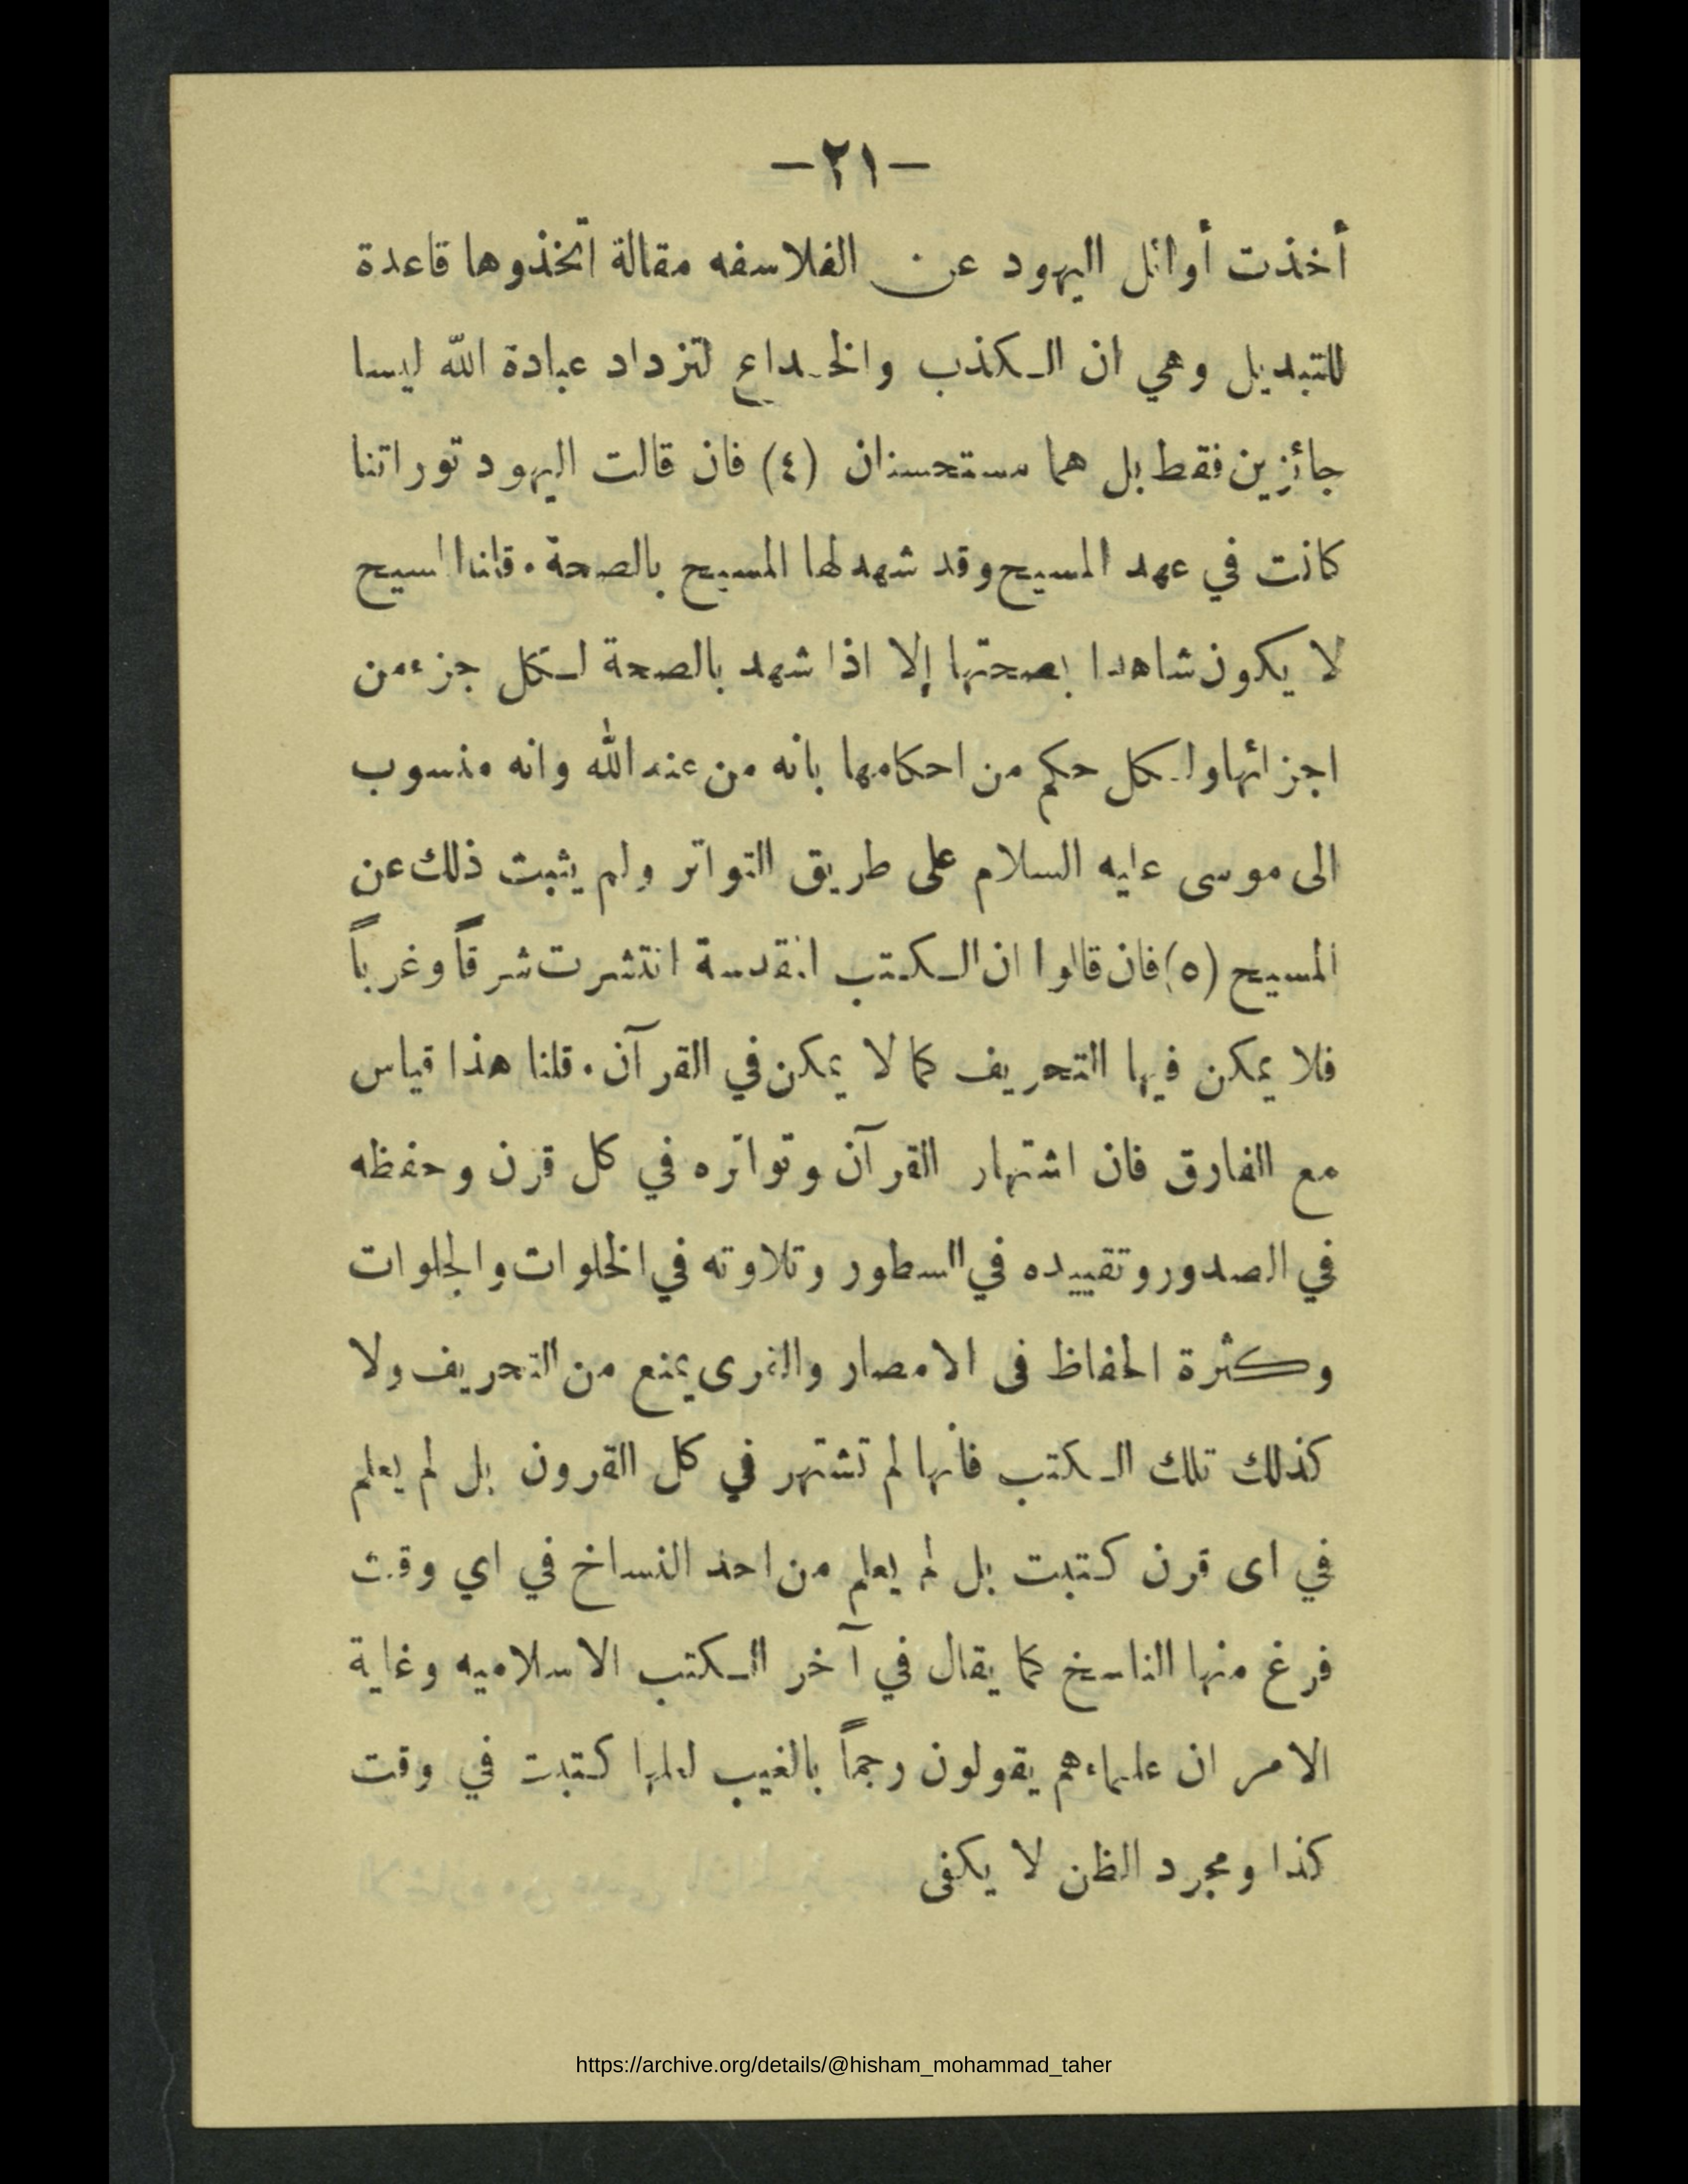 -٢١-
أخذت أوائل اليهود عن الفلاسفه مقالة اتخذوها قاعدة
للتبديل وهي ان الكذب والخداع لتزداد عبادة الله ليسا
جائزين فقط بل هما مستحسنان (٤) فان قالت اليهود توراتنا
كانت في عهد المسيح وقد شهد لها المسيح بالصحة. قلنا المسيح
لا يكون شاهدا بصحتها إلا اذا شهد بالصحة لكل جزء من
اجزائها ولكل حكم من احكامها بانه من عند الله وانه منسوب
الى موسى عليه السلام على طريق التواتر ولم يثبت ذلك عن
المسيح (٥) فان قالوا ان الكتب المقدسة انتشرت شرقاً وغرباً
فلا يمكن فيها التحريف كما لا يمكن في القرآن. قلنا هذا قياس
مع الفارق فان اشتهار القرآن وتواتره في كل قرن وحفظه
في الصدور وتقييده في السطور وتلاوته في الخلوات والجلوات
وكثرة الحفاظ فى الامصار والقرى يمنع من التحريف ولا
كذلك تلك الكتب فأنها لم تشتهر في كل القرون بل لم يعلم
في اى قرن كتبت بل لم يعلم من احد النساخ في اي وقت
فرغ منها الناسخ كما يقال في آخر الكتب الاسلاميه وغاية
الامر ان علماءهم يقولون رجماً بالغيب لعلها كتبت في وقت
كذا ومجرد الظن لا يكفى
https://archive.org/details/@hisham_mohammad_taher